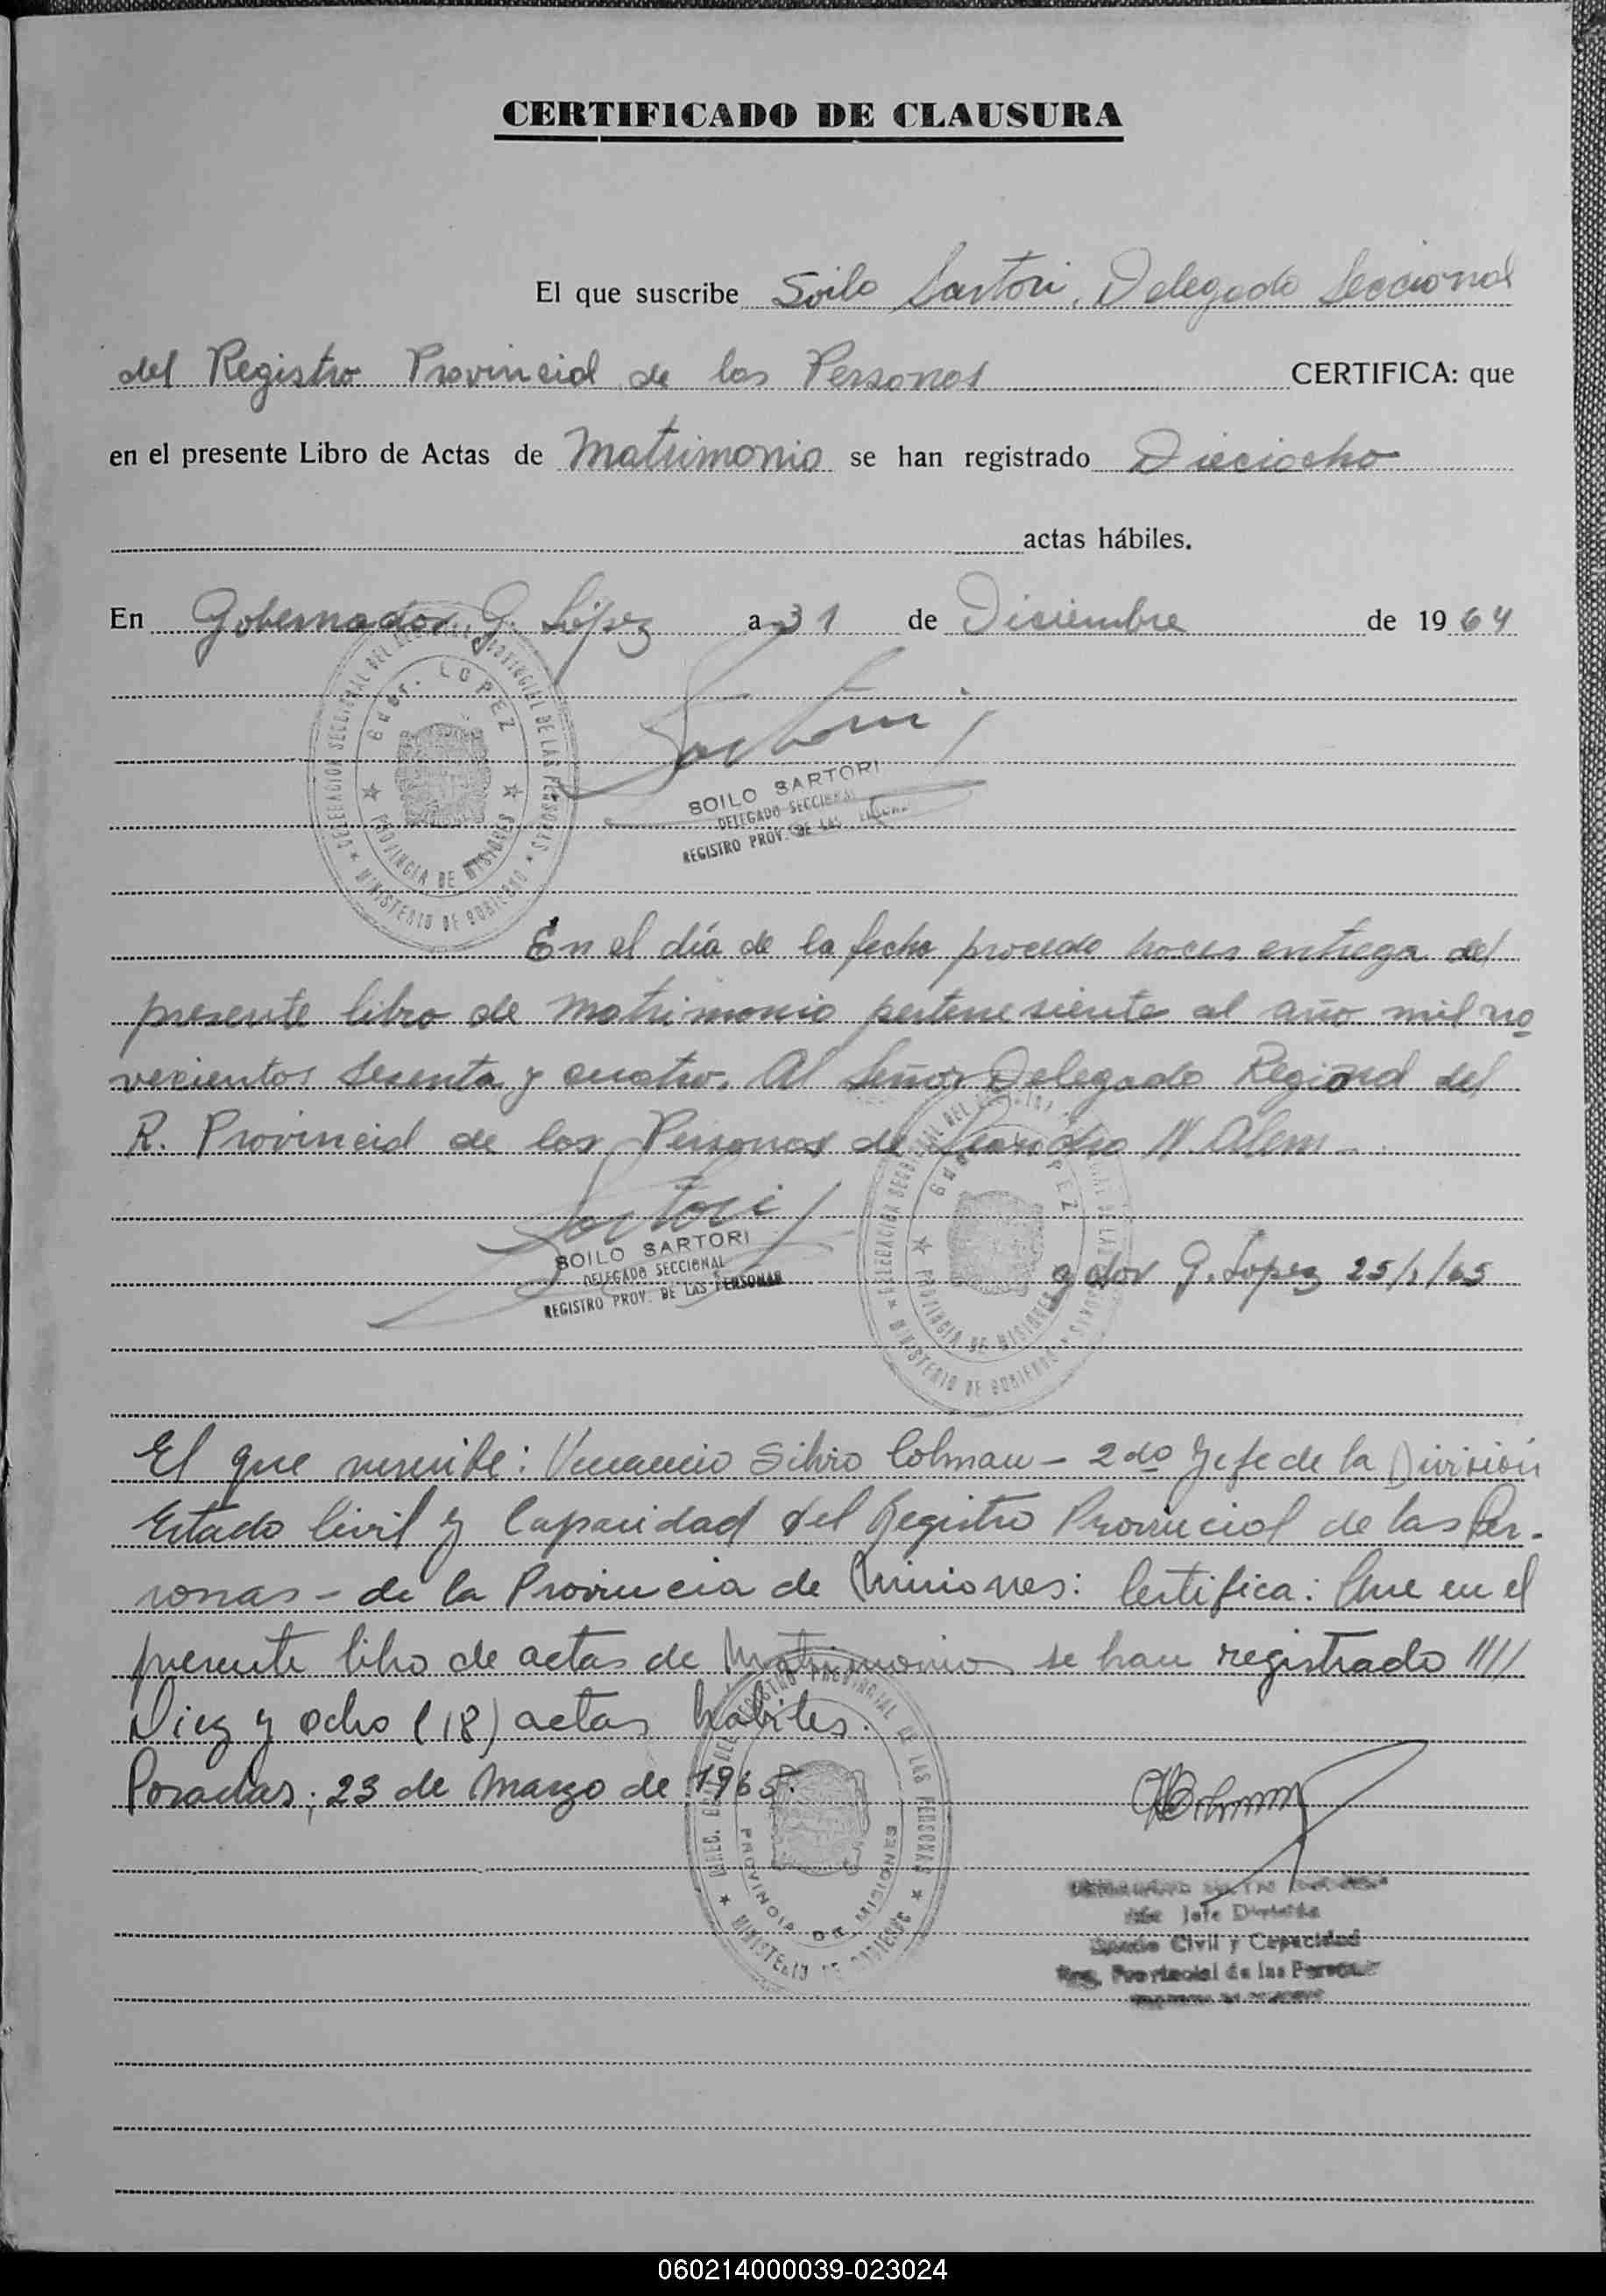 CERTIFICADO DE CLAUSURA
El que suscribe Soilo Sartori, Delegado Seccional
del Registro Provincial de las Personas CERTIFICA: que
en el presente Libro de Actas de Matrimonio se han registrado Dieciocho
actas hábiles.
En Gobernador G. López a 31 de Diciembre de 1964
DELEGACION SECCIONAL DEL REGISTRO PROVINCIAL DE LAS PERSONAS
Gdor. LOPEZ
PROVINCIA DE MISIONES
MINISTERIO DE GOBIERNO
Sartori
SOILO SARTORI
DELEGADO SECCIONAL
REGISTRO PROV. DE LAS
En el día de la fecha procedo hacer entrega del
presente libro de matrimonio pertenesiente al año mil no
vecientos sesenta y cuatro. Al Señor Delegado Regional del
R. Provincial de las Personas de Leandro N. Alem
Sartori
SOILO SARTORI
DELEGADO SECCIONAL
REGISTRO PROV. DE LAS PERSONAS
PROVINCIA DE MISIONES
MINISTERIO DE GOBIERNO
gdor G. Lopez 25/1/65
El que suscribe: Venancio Silvio Colman - 2do Jefe de la División
Estado Civil y Capacidad del Registro Provincial de las Per-
sonas - de la Provincia de Misiones: Certifica: Que en el
presente libro de actas de Matrimonio se han registrado ////
Diez y ocho (18) actas hábiles.
Posadas; 23 de Marzo de 1965.
REGISTRO PROVINCIAL DE LAS PERSONAS
PROVINCIA DE MISIONES
MINISTERIO DE GOBIERNO
Jefe División
Estado Civil y Capacidad
Reg. Provincial de las Personas
060214000039-023024